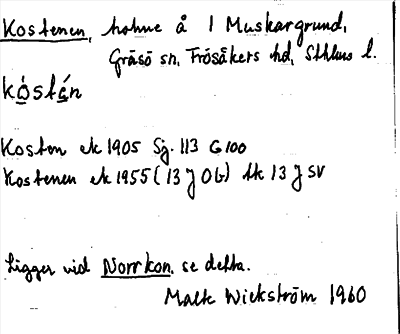 Kostenen, holme å I Muskargrund,
Gräsö sn, Frösåkers hd, Sthlms l.
kòstán
Koston ek 1905 Sg. 113 G 100
Kostenen ek 1955 (13 J OG) tk 13 J SV
Ligger vid Norrkon. se detta.
Malte Wickström 1960